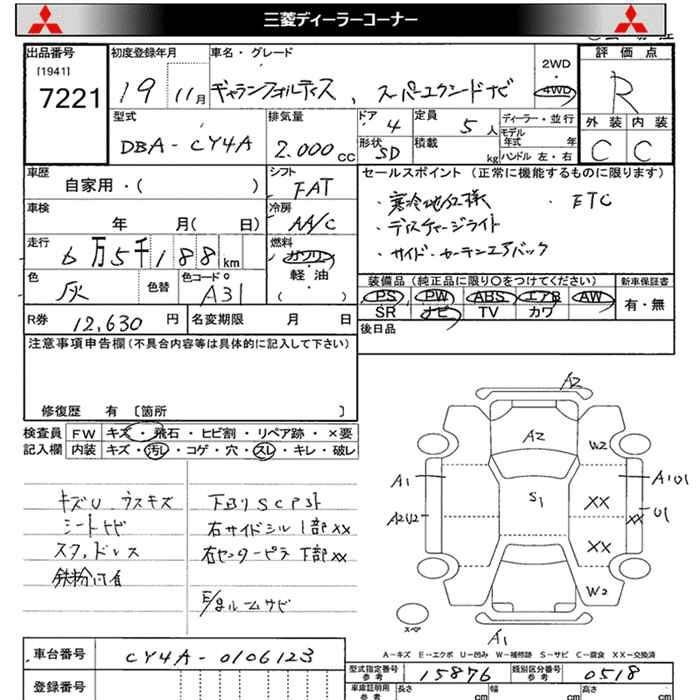 三菱ディーラーコーナー
出品番号 初度登録年月 車名・グレード 評価点
[1941]
7221 19 11月 ギャランフォルティス、スーパーエクシードナビ 2WD 4WD R
型式 排気量 ドア 定員 ディーラー・並行 外装 内装
DBA-CY4A 2.000cc 4 5人 モデル年式 年
形状 SD 積載 kg ハンドル 左・右 C C
車歴 シフト セールスポイント(正常に機能するものに限ります)
自家用・( ) FAT ・寒冷地仕様 ・ETC
車検 冷房 ・ディスチャージライト
年 月( 日) AA/C ・サイド・カーテンエアバック
走行 燃料
6万5千188km ガソリン
色 色替 色コードo 軽・油 装備品(純正品に限り○をつけてください) 新車保証書
灰 A31 (・) PS PW ABS エアB AW 有・無
SR ナビ TV カワ
R券 12,630円 名変期限 月 日 後日品
注意事項申告欄(不具合内容等は具体的に記入して下さい)
修復歴 有 〔箇所 〕
検査員 FW キズ・飛石・ヒビ割・リペア跡・×要
記入欄 内装 キズ・汚レ・コゲ・穴・スレ・キレ・破レ
キズU
シートサビ
鉄粉付着
右サイドシル1部XX
右センターピラ下部XX
E/gルームサビ
A2
A2 W2
A1 S1 XX A1U1
A2U2 XX U1
XX
W2
スペア
A1
A-キズ E-エクボ U-凹み W-補修跡 S-サビ C-腐食 XX-交換済
車台番号 CY4A-0106123
型式指定番号 参考 15876 類別区分番号 参考 0518
登録番号 車庫証明用 参考 長さ cm 幅 cm 高さ cm